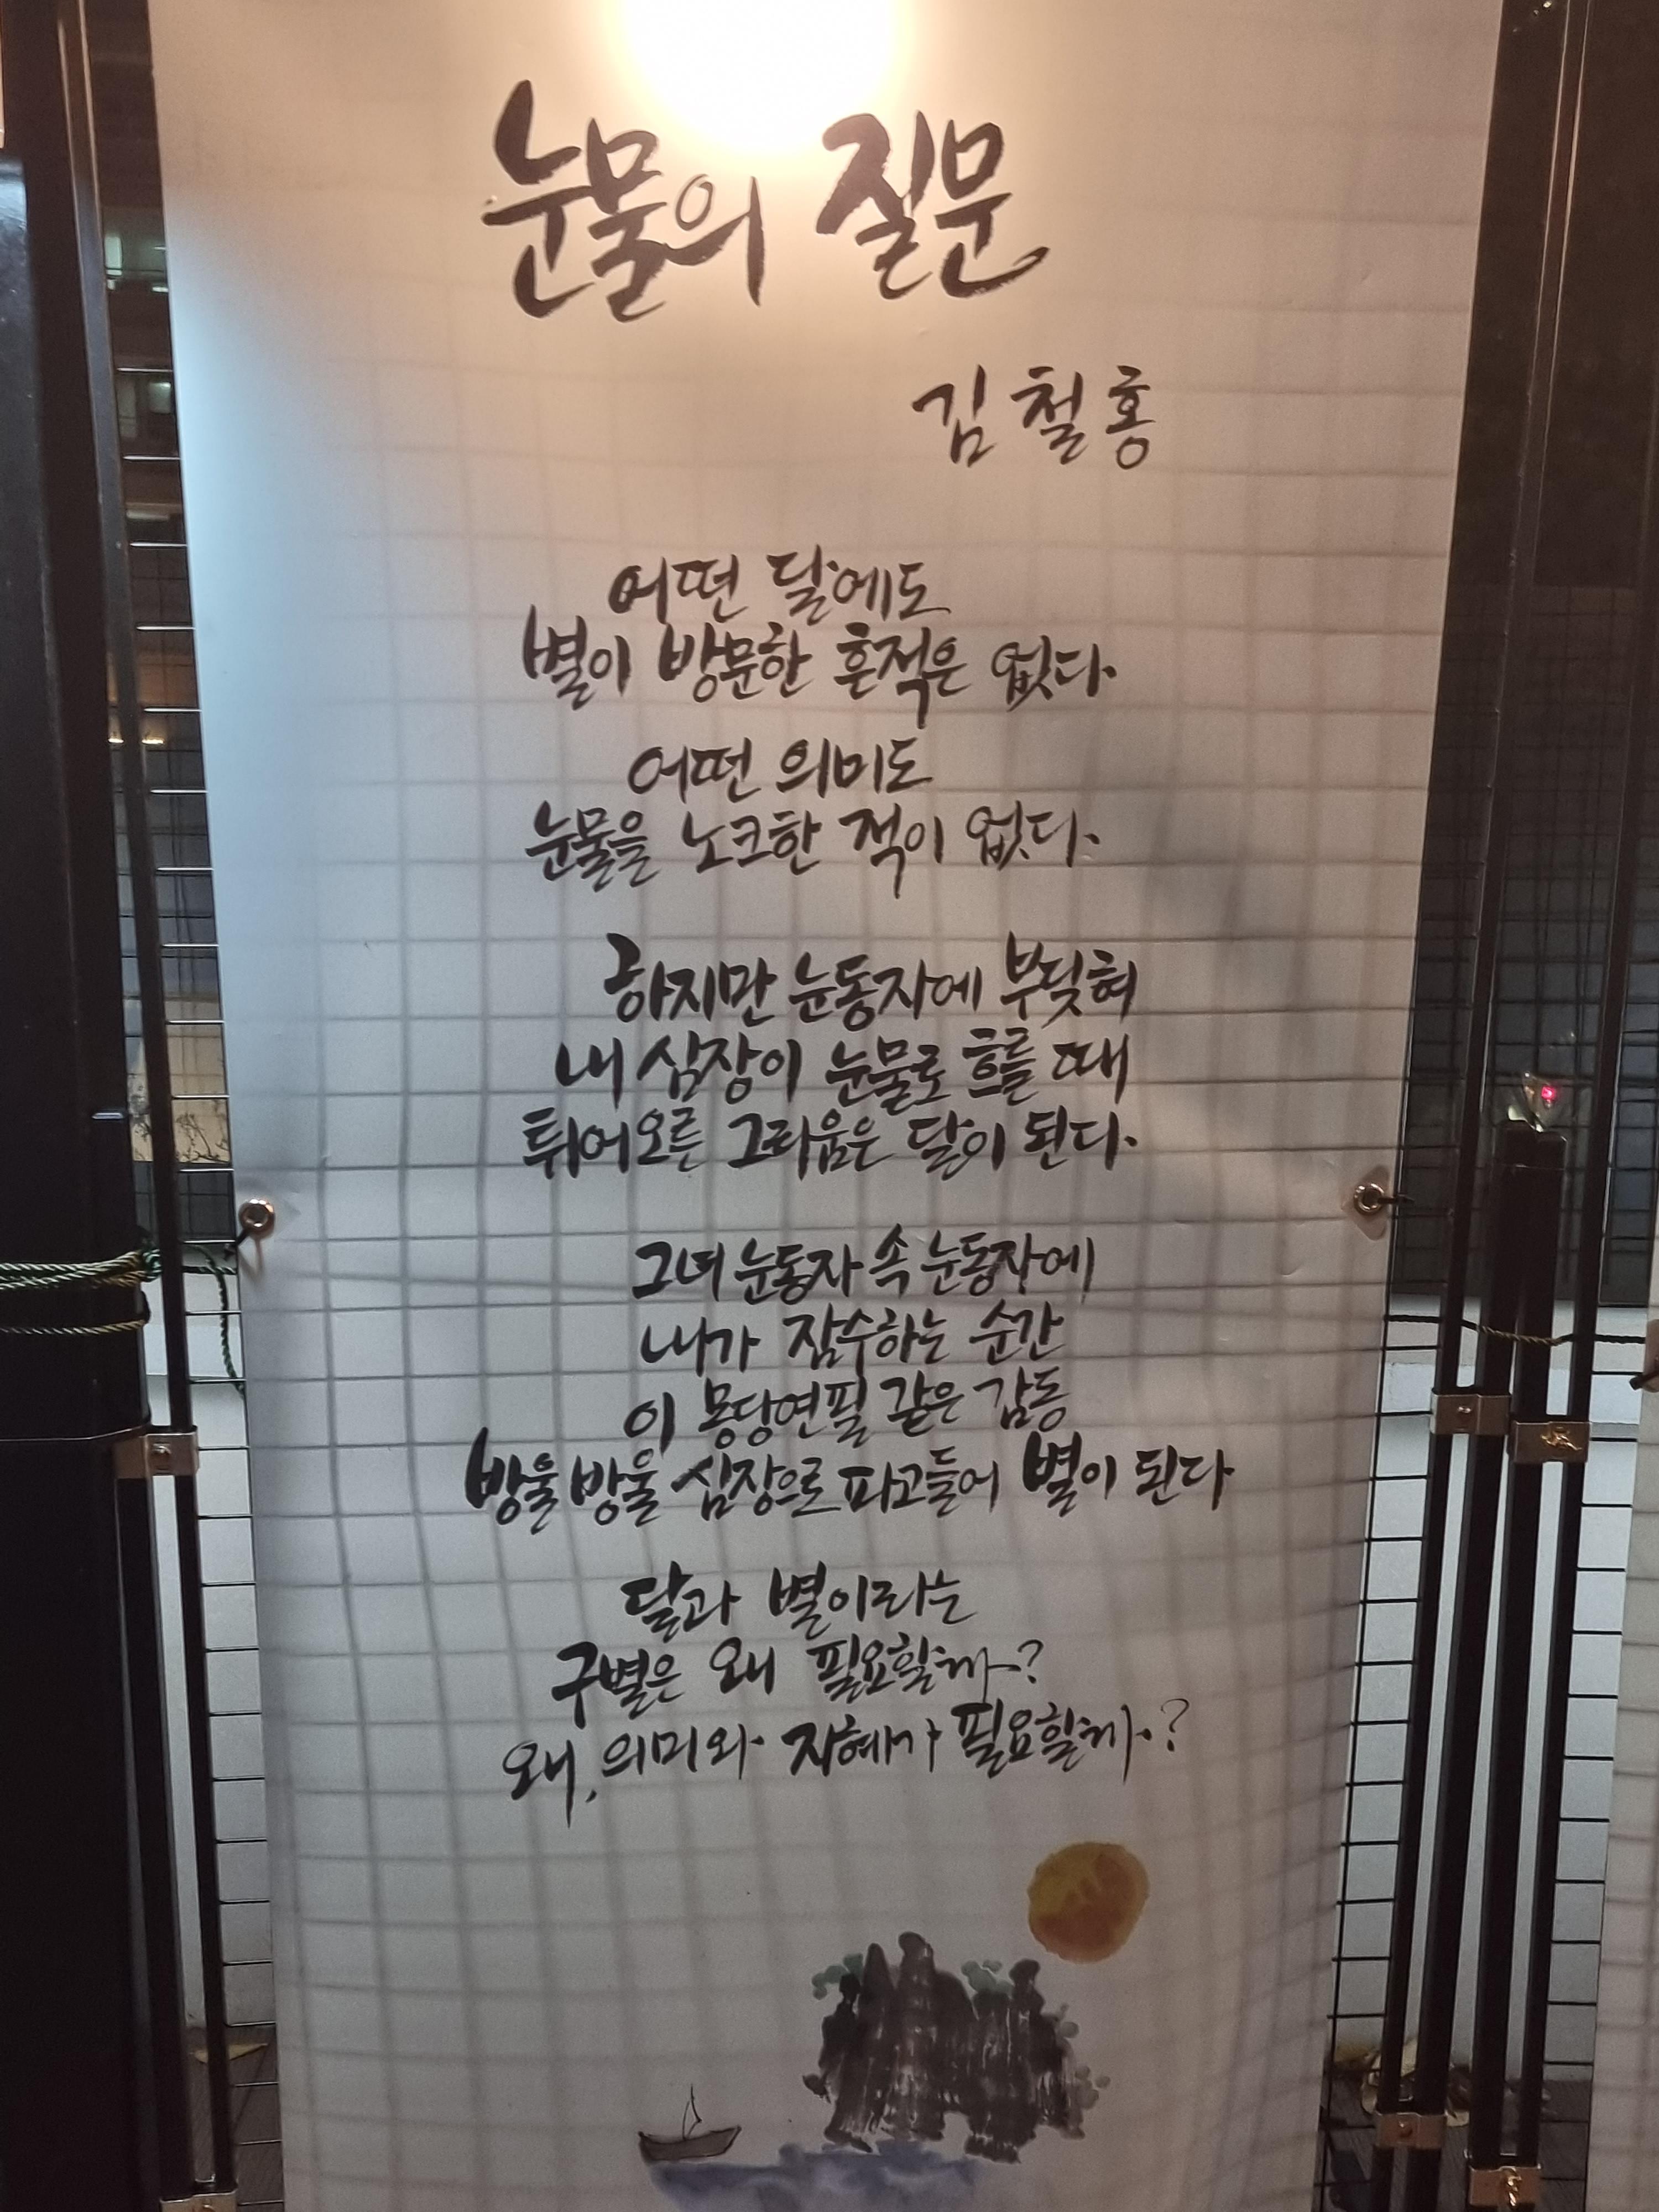 눈물의 질문
김철홍
어떤 달에도
별이 방문한 흔적은 없다.
어떤 의미도
눈물을 노크한 적이 없다.
하지만 눈동자에 부딪혀
내 심장이 눈물로 흐를 때
튀어오른 그리움은 달이 된다.
그녀 눈동자 속 눈동자에
내가 잠수하는 순간
이 몽당연필 같은 감동
방울방울 심장으로 파고들어 별이 된다
달과 별이라는
구별은 왜 필요할까?
왜, 의미와 지혜가 필요할까?